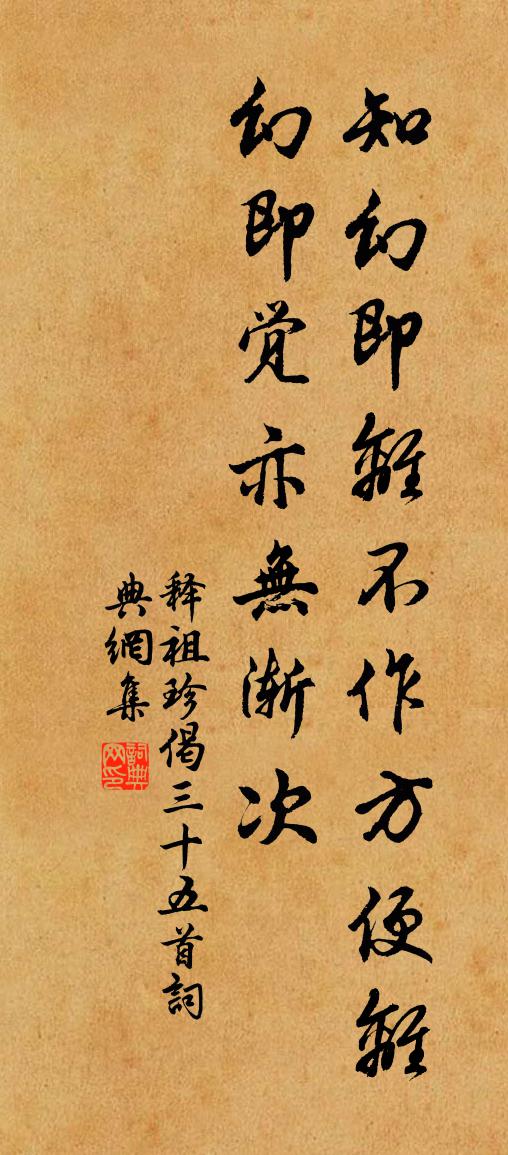 知幻即離不作方便離
幻即觉亦無漸次
释祖珍偈三十五首詞
典網集
詞典网印